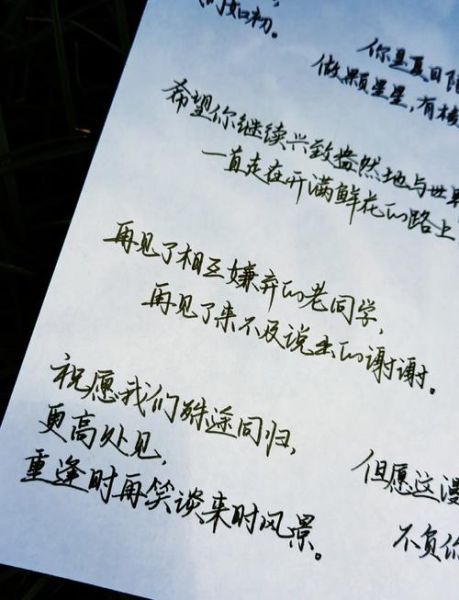 们如初。
你是夏日限
做颗星星,有棱
希望你继续兴致盎然地与世界
一直走在开满鲜花的路上
再见了相互嫌弃的老同学,
再见了来不及说出的谢谢。
祝愿我们殊途同归,
更高处见,
重逢时再笑谈来时风景。
但愿这漫
不负你